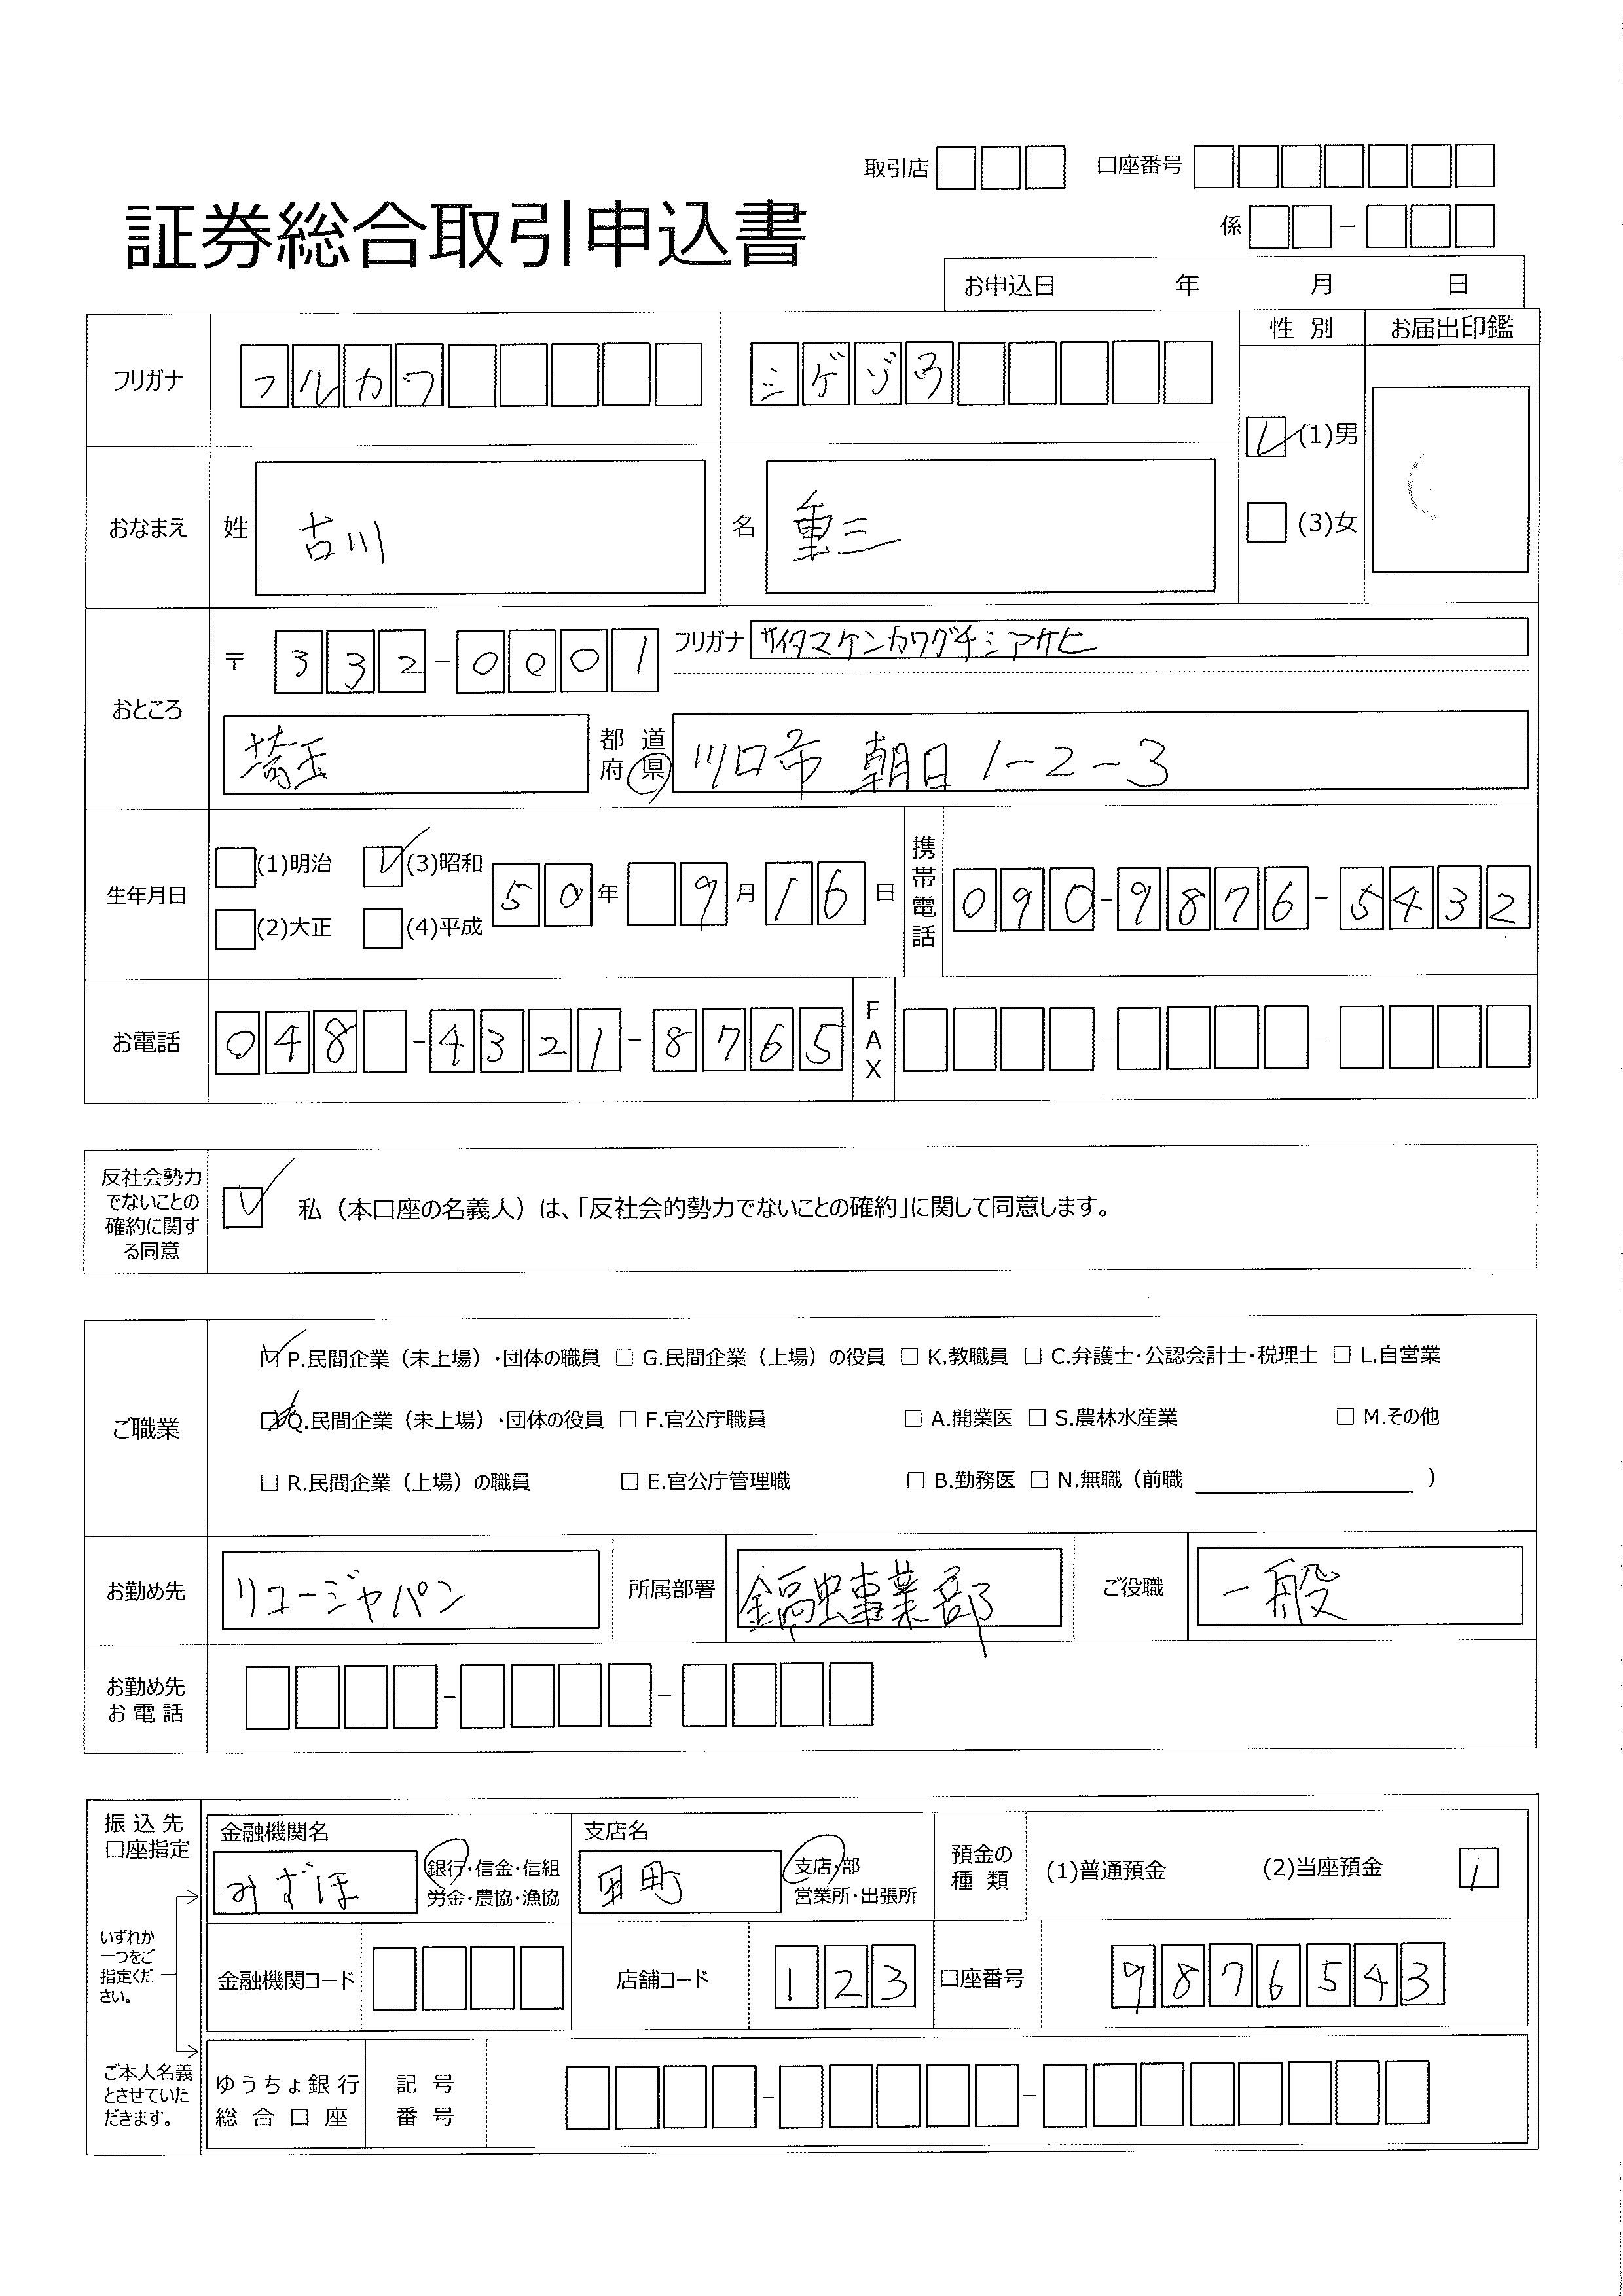 取引店 口座番号
証券総合取引申込書
係 －
お申込日 年 月 日
フリガナ フルカワ シゲゾウ
性別 お届出印鑑
(1)男
(3)女
おなまえ 姓 古川 名 重三
おところ 〒 332-0001 フリガナ サイタマケンカワグチシアサヒ
埼玉 都道府県 川口市 朝日 1-2-3
生年月日 (1)明治 (3)昭和 50年 9月16日
(2)大正 (4)平成
携帯電話 090-9876-5432
お電話 048-4321-8765 FAX - -
反社会勢力
でないことの
確約に関す
る同意
私（本口座の名義人）は、「反社会的勢力でないことの確約」に関して同意します。
ご職業
P.民間企業（未上場）・団体の職員 G.民間企業（上場）の役員 K.教職員 C.弁護士・公認会計士・税理士 L.自営業
Q.民間企業（未上場）・団体の役員 F.官公庁職員 A.開業医 S.農林水産業 M.その他
R.民間企業（上場）の職員 E.官公庁管理職 B.勤務医 N.無職（前職 ）
お勤め先 リコージャパン 所属部署 金融事業部 ご役職 一般
お勤め先
お電話 - -
振込先
口座指定
いずれか
一つをご
指定くだ
さい。
ご本人名義
とさせていた
だきます。
金融機関名 支店名
みずほ 銀行・信金・信組
労金・農協・漁協
町 支店・部
営業所・出張所
預金の
種類 (1)普通預金 (2)当座預金 1
金融機関コード 店舗コード 123 口座番号 9876543
ゆうちょ銀行 記号
総合口座 番号 - -